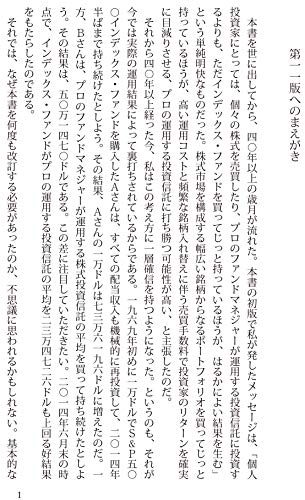 第一一版へのまえがき
本書を世に出してから、四〇年以上の歳月が流れた。本書の初版で私が発したメッセージは、「個人
投資家にとっては、個々の株式を売買したり、プロのファンドマネジャーが運用する投資信託に投資す
るよりも、ただインデックス・ファンドを買ってじっと待っているほうが、はるかによい結果を生む」
という単純明快なものだった。株式市場を構成する幅広い銘柄からなるポートフォリオを買ってじっと
持っているほうが、高い運用コストと頻繁な銘柄入れ替えに伴う売買手数料で投資家のリターンを確実
に目減りさせる、プロの運用する投資信託に打ち勝つ可能性が高い、と主張したのだ。
それから四〇年以上経った今、私はこの考え方に一層確信を持つようになった。というのも、それが
今では実際の運用結果によって裏打ちされているからである。一九六九年初めに一万ドルでS&P五〇
〇インデックス・ファンドを購入したAさんは、すべての配当収入も機械的に再投資して、二〇一四年
半ばまで持ち続けたとしよう。その結果、Aさんの一万ドルは七三万六一九六ドルに増えたのだ。一
方、Bさんは、プロのファンドマネジャーが運用する株式投資信託の平均を買って持ち続けたとしよ
う。その結果は、五〇万一四七〇ドルである。この差に注目していただきたい。二〇一四年六月末の時
点で、インデックス・ファンドがプロの運用する投資信託の平均を、二三万四七二六ドルも上回る好結果
をもたらしたのである。
それでは、なぜ本書を何度も改訂する必要があったのか、不思議に思われるかもしれない。基本的な
1